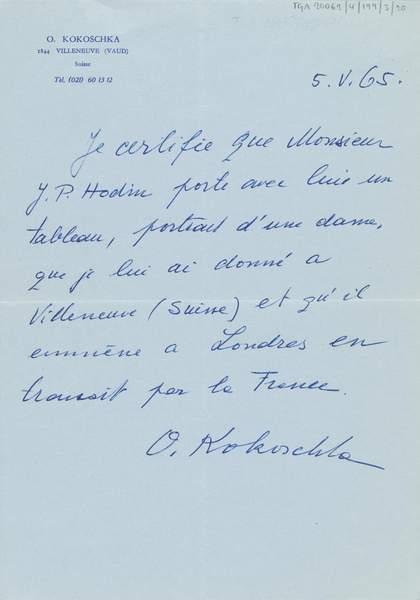 TGA 20062/4/199/3/20
O. KOKOSCHKA
1844 VILLENEUVE (VAUD)
Suisse
Tél. (021) 60 13 12
5.V.65.
Je certifie que Monsieur
J.P. Hodin porte avec luis un
tableau, portrait d'une dame,
que je lui ai donné a
Villeneuve (Suisse) et qu'il
emmène a Londres en
transit par la France.
O. Kokoschka